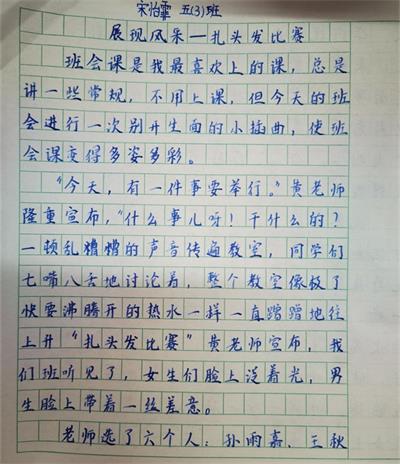 宋怡霏 五(3)班
展现风采—扎头发比赛
班会课是我最喜欢上的课，总是
讲一些常规，不用上课，但今天的班
会进行一次别开生面的小插曲，使班
会课变得多姿多彩。
“今天，有一件事要举行。”黄老师
隆重宣布，“什么事儿呀！干什么的？
一顿乱糟糟的声音传遍教室，同学们
七嘴八舌地讨论着，整个教室像极了
快要沸腾开的热水一样一直蹭蹭地往
上升“扎头发比赛”黄老师宣布，我
们班听见了，女生们脸上泛着光，男
生脸上带着一丝差意。
老师选了六个人：孙雨嘉、王秋